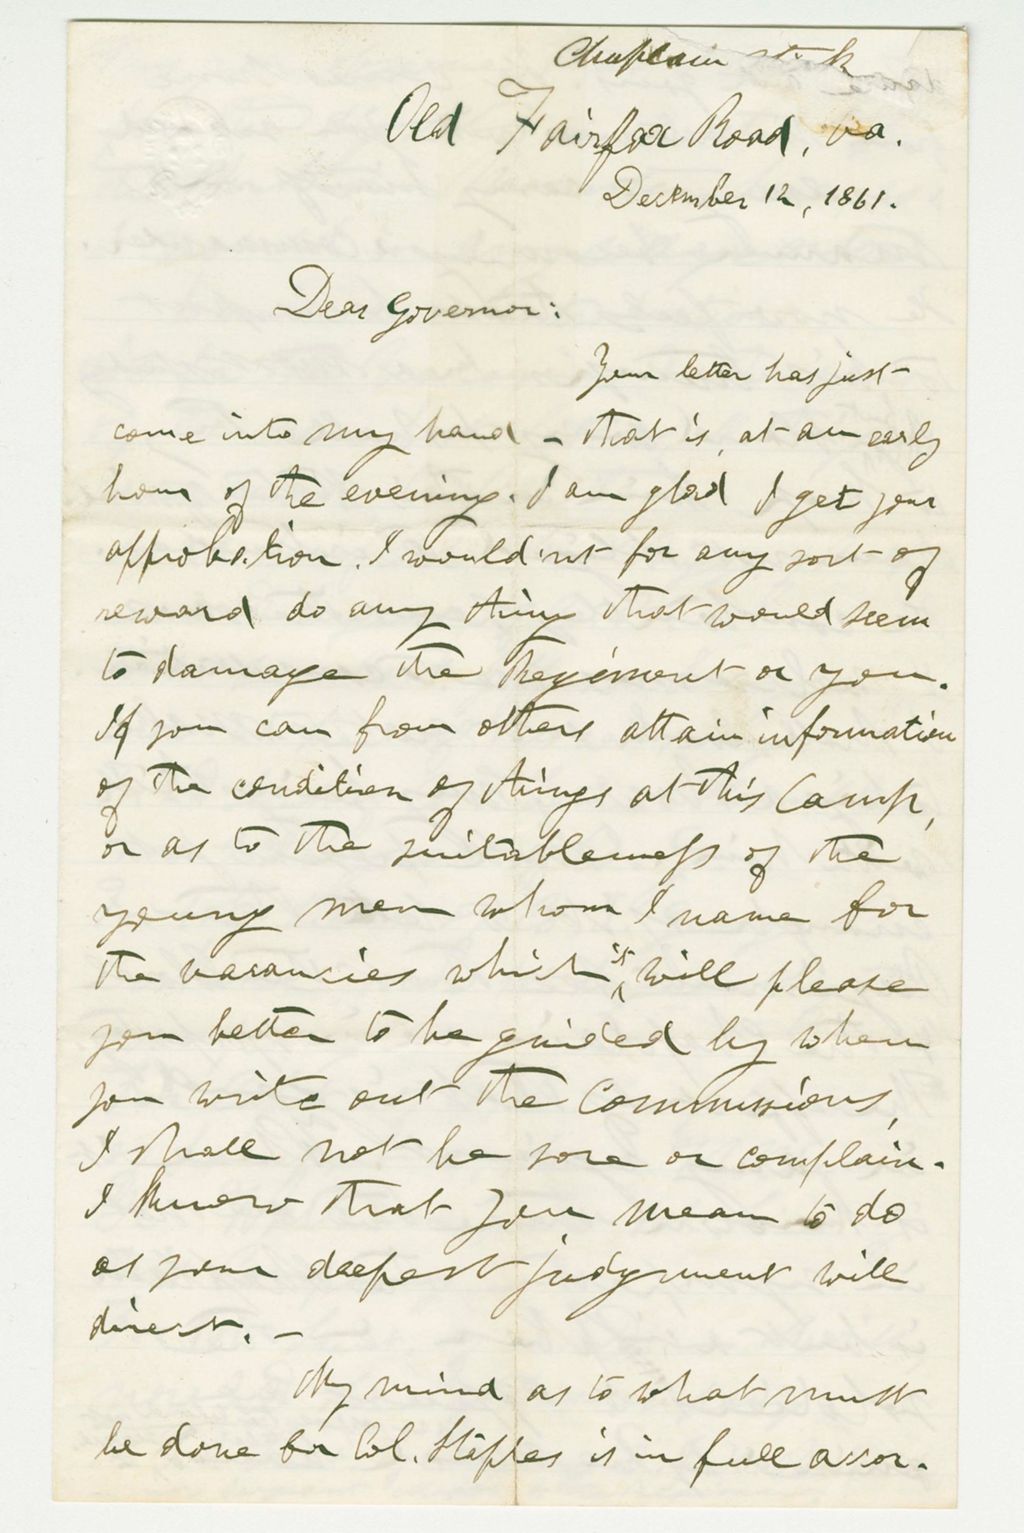 Chaplain
Old Fairfax Road, Va.
December 12, 1861.
Dear Governor:
Your letter has just
come into my hand - that is, at an early
hour of the evening. I am glad I get your
approbation. I would'nt for any sort of
reward do any thing that would seem
to damage the Regiment or you.
If you can from others attain information
of the condition of things at this Camp,
or as to the suitableness of the
young men whom I name for
the vacancies which it will please
you better to be guided by when
you write out the Commissions,
I shall not be sore or complain.
I know that you mean to do
as your deepest judgment will
direct. -
My mind as to what must
be done for Col. Staples is in full accor-